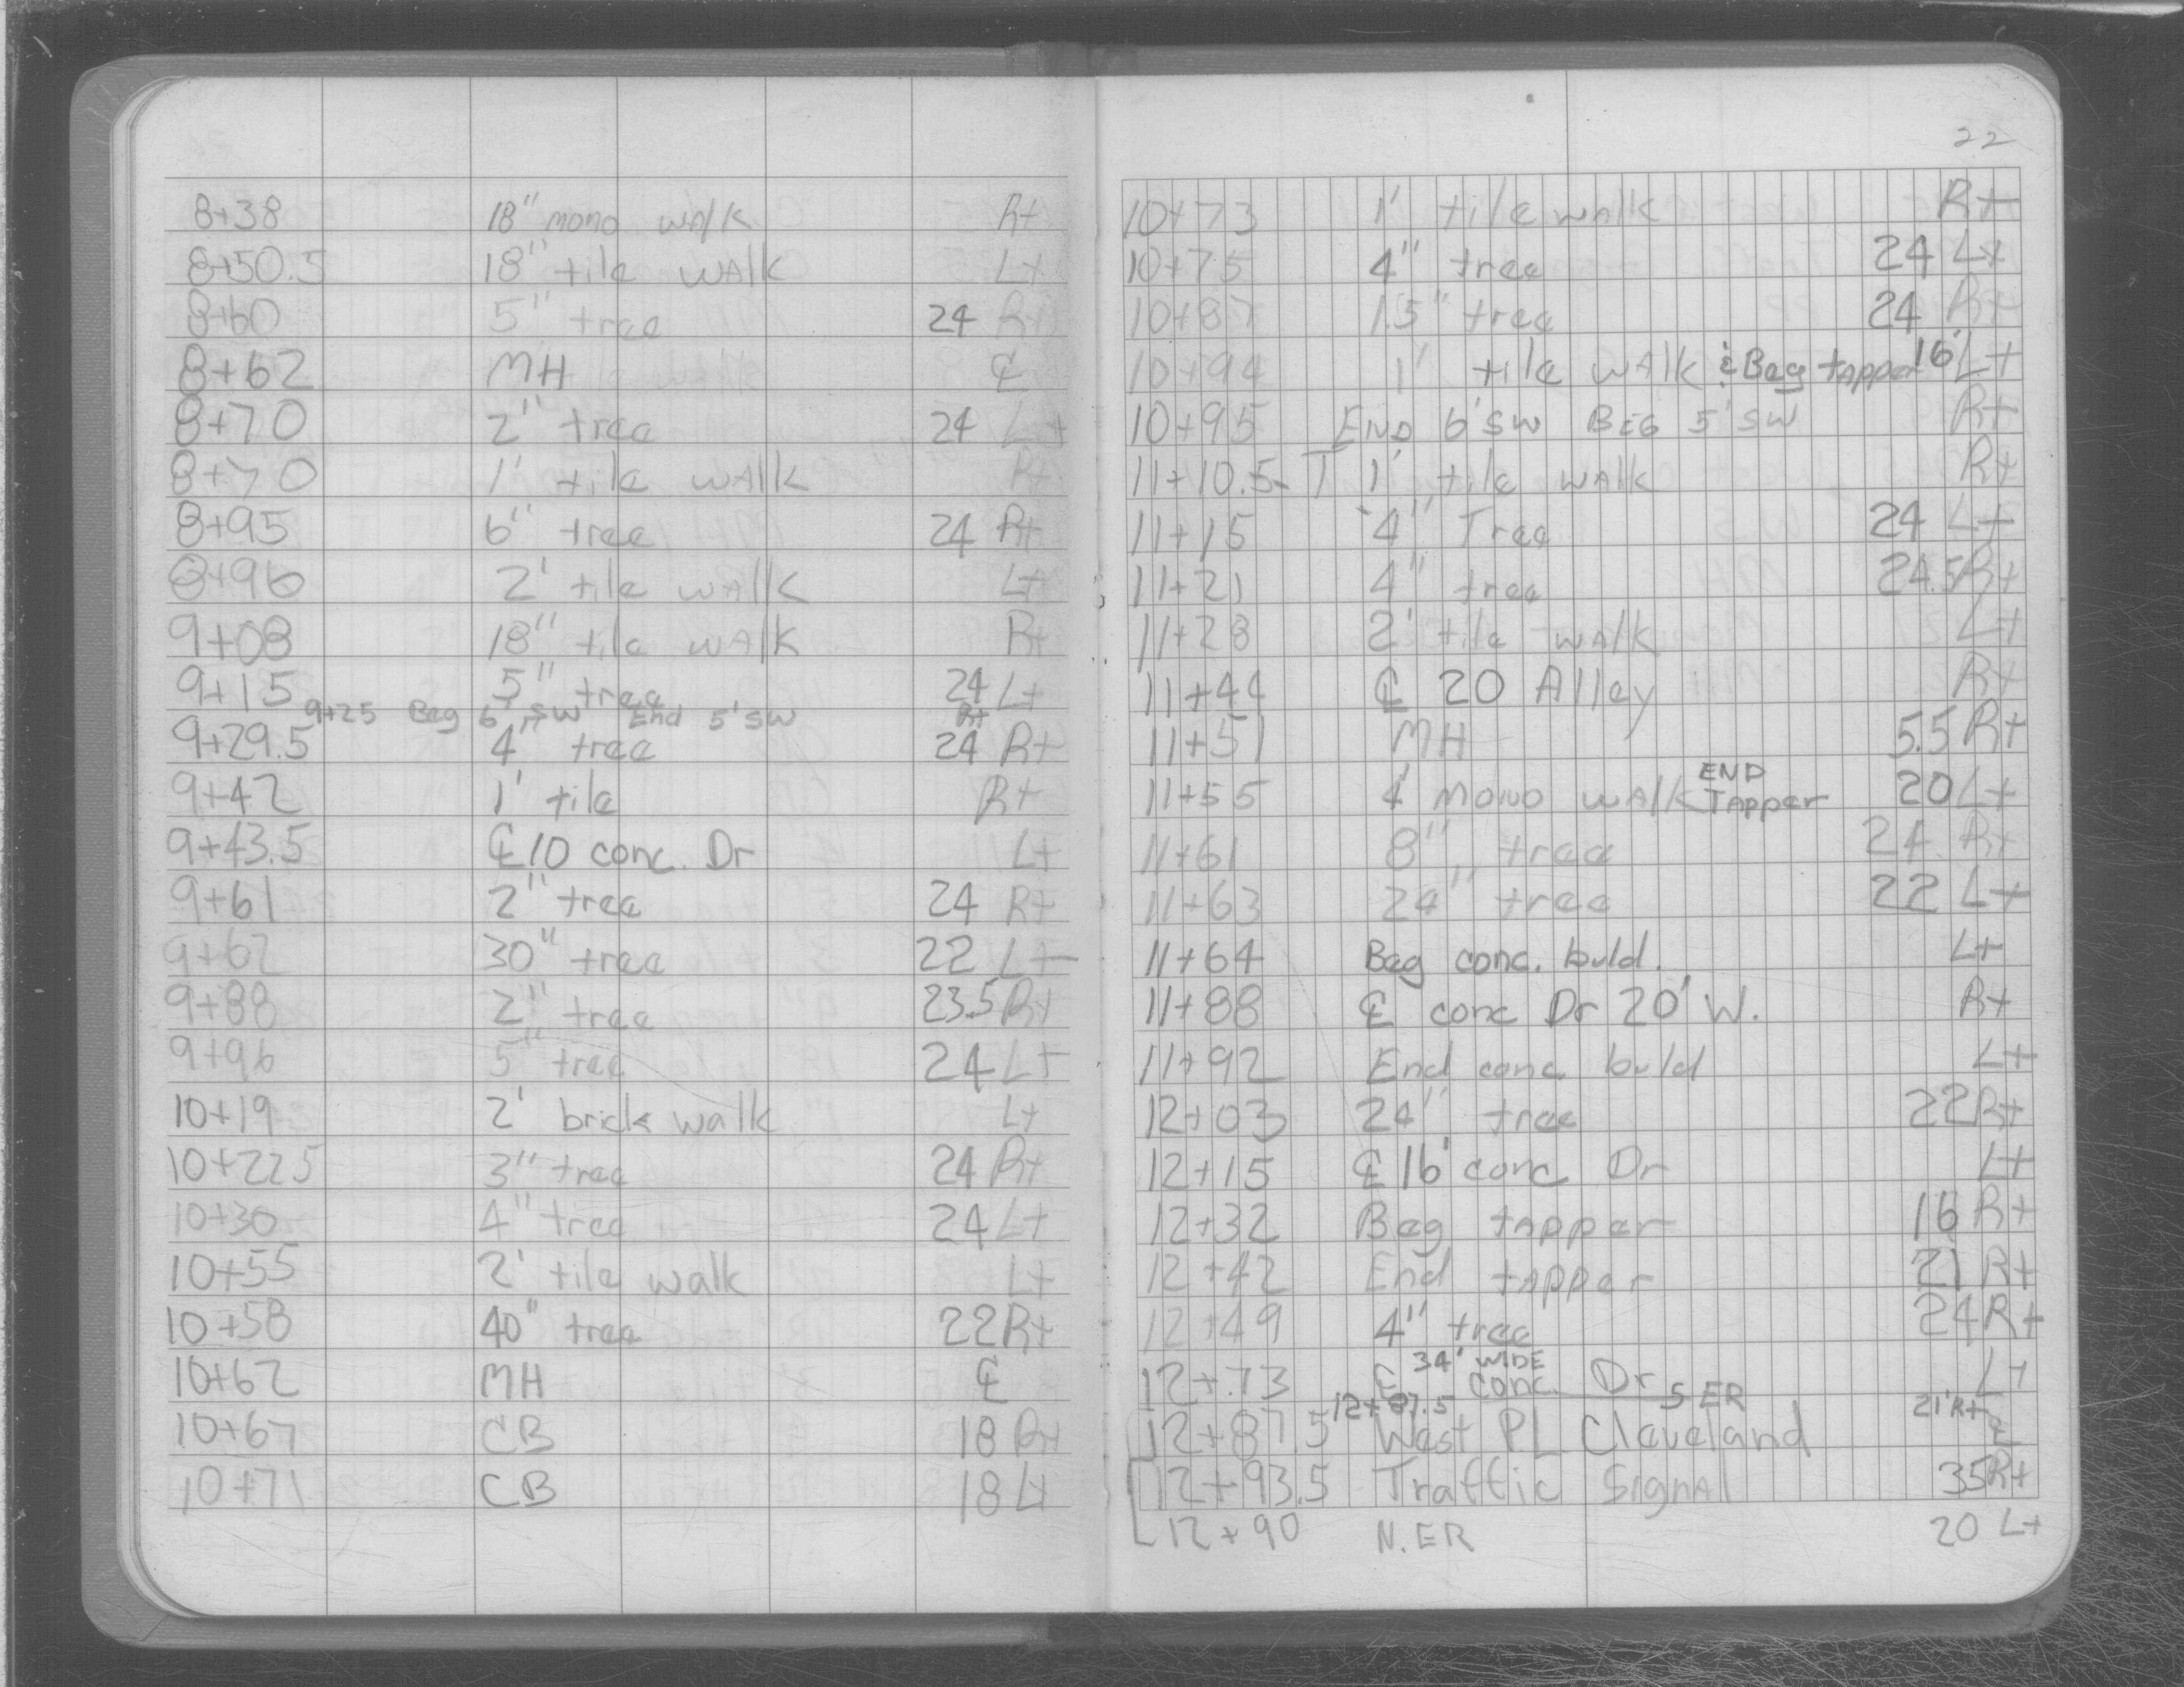 8+38 18" mono walk Rt
8+50.5 18" tile walk Lt
8+60 5" tree 24 Rt
8+62 MH ℄
8+70 2" tree 24 Lt
8+70 1' tile walk Rt
8+95 6" tree 24 Rt
8+96 2' tile walk Lt
9+08 18" tile walk Rt
9+15 5" tree 24 Lt
9+25 Beg 6' SW End 5' SW Rt
9+29.5 4" tree 24 Rt
9+42 1' tile Rt
9+43.5 ℄ 10 conc. Dr Lt
9+61 2" tree 24 Rt
9+62 30" tree 22 Lt
9+88 2" tree 23.5 Rt
9+96 5" tree 24 Lt
10+19 2' brick walk Lt
10+22.5 3" tree 24 Rt
10+30 4" tree 24 Lt
10+55 2' tile walk Lt
10+58 40" tree 22 Rt
10+62 MH ℄
10+67 CB 18 Rt
10+71 CB 18 Lt
22
10+73 1' tile walk Rt
10+75 4" tree 24 Lt
10+87 1.5" tree 24 Rt
10+94 1' tile walk & Beg tapper 16' Lt
10+95 END 6' SW BEG 5' SW Rt
11+10.5 - T 1' tile walk Rt
11+15 4" Tree 24 Lt
11+21 4" tree 24.5 Rt
11+28 2' tile walk Lt
11+44 ℄ 20 Alley Rt
11+51 MH 5.5 Rt
11+55 4' mono walk END Tapper 20 Lt
11+61 8" tree 24 Rt
11+63 24" tree 22 Lt
11+64 Beg conc. buld. Lt
11+88 ℄ conc Dr 20' W. Rt
11+92 End conc. buld Lt
12+03 24" tree 22 Rt
12+15 ℄ 16' conc Dr Lt
12+32 Beg tapper 16 Rt
12+42 End tapper 21 Rt
12+49 4" tree 24 Rt
12+73 ℄ 34' WIDE conc. Dr Lt
12+87.5 S ER 21' Rt
12+87.5 West PL Cleveland ℄
12+93.5 Traffic Signal 35 Rt
12+90 N. ER 20 Lt